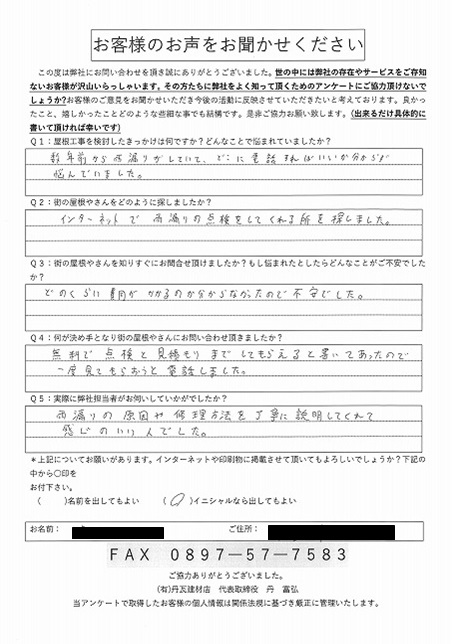 お客様のお声をお聞かせください
この度は弊社にお問い合わせを頂き誠にありがとうございました。世の中には弊社の存在やサービスをご存知
ないお客様が沢山いらっしゃいます。その方たちに弊社をよく知って頂くためのアンケートにご協力頂けないで
しょうか?お客様のご意見をお聞かせいただき今後の活動に反映させていただきたいと考えております。良かっ
たこと、嬉しかったことどのような些細な事でも結構です。是非ご協力お願い致します。(出来るだけ具体的に
書いて頂ければ幸いです)
Q1:屋根工事を検討したきっかけは何ですか?どんなことで悩まれていましたか?
数年前から雨漏りがしていて、どこに電話すればいいか分からず
悩んでいました。
Q2:街の屋根やさんをどのように探しましたか?
インターネットで雨漏りの点検をしてくれる所を探しました。
Q3:街の屋根やさんを知りすぐにお問合せ頂けましたか?もし悩まれたとしたらどんなことがご不安でした
か?
どのくらいに費用がかかるのか分からなかったので不安でした。
Q4:何が決め手となり街の屋根やさんにお問い合わせ頂きましたか?
無料で点検と見積もりまでしてもらえると書いてあったので
一度見てもらおうと電話しました。
Q5:実際に弊社担当者がお伺いしていかがでしたか?
雨漏りの原因や修理方法を丁寧に説明してくれて
感じのいい人でした。
*上記についてお願いがあります。インターネットや印刷物に掲載させて頂いてもよろしいでしょうか?下記の
中から〇印を
お付下さい。
( )名前を出してもよい (〇)イニシャルなら出してもよい
お名前: ご住所:
FAX 0897-57-7583
ご協力ありがとうございました。
(有)丹瓦建材店 代表取締役 丹 富弘
当アンケートで取得したお客様の個人情報は関係法規に基づき厳正に管理いたします。